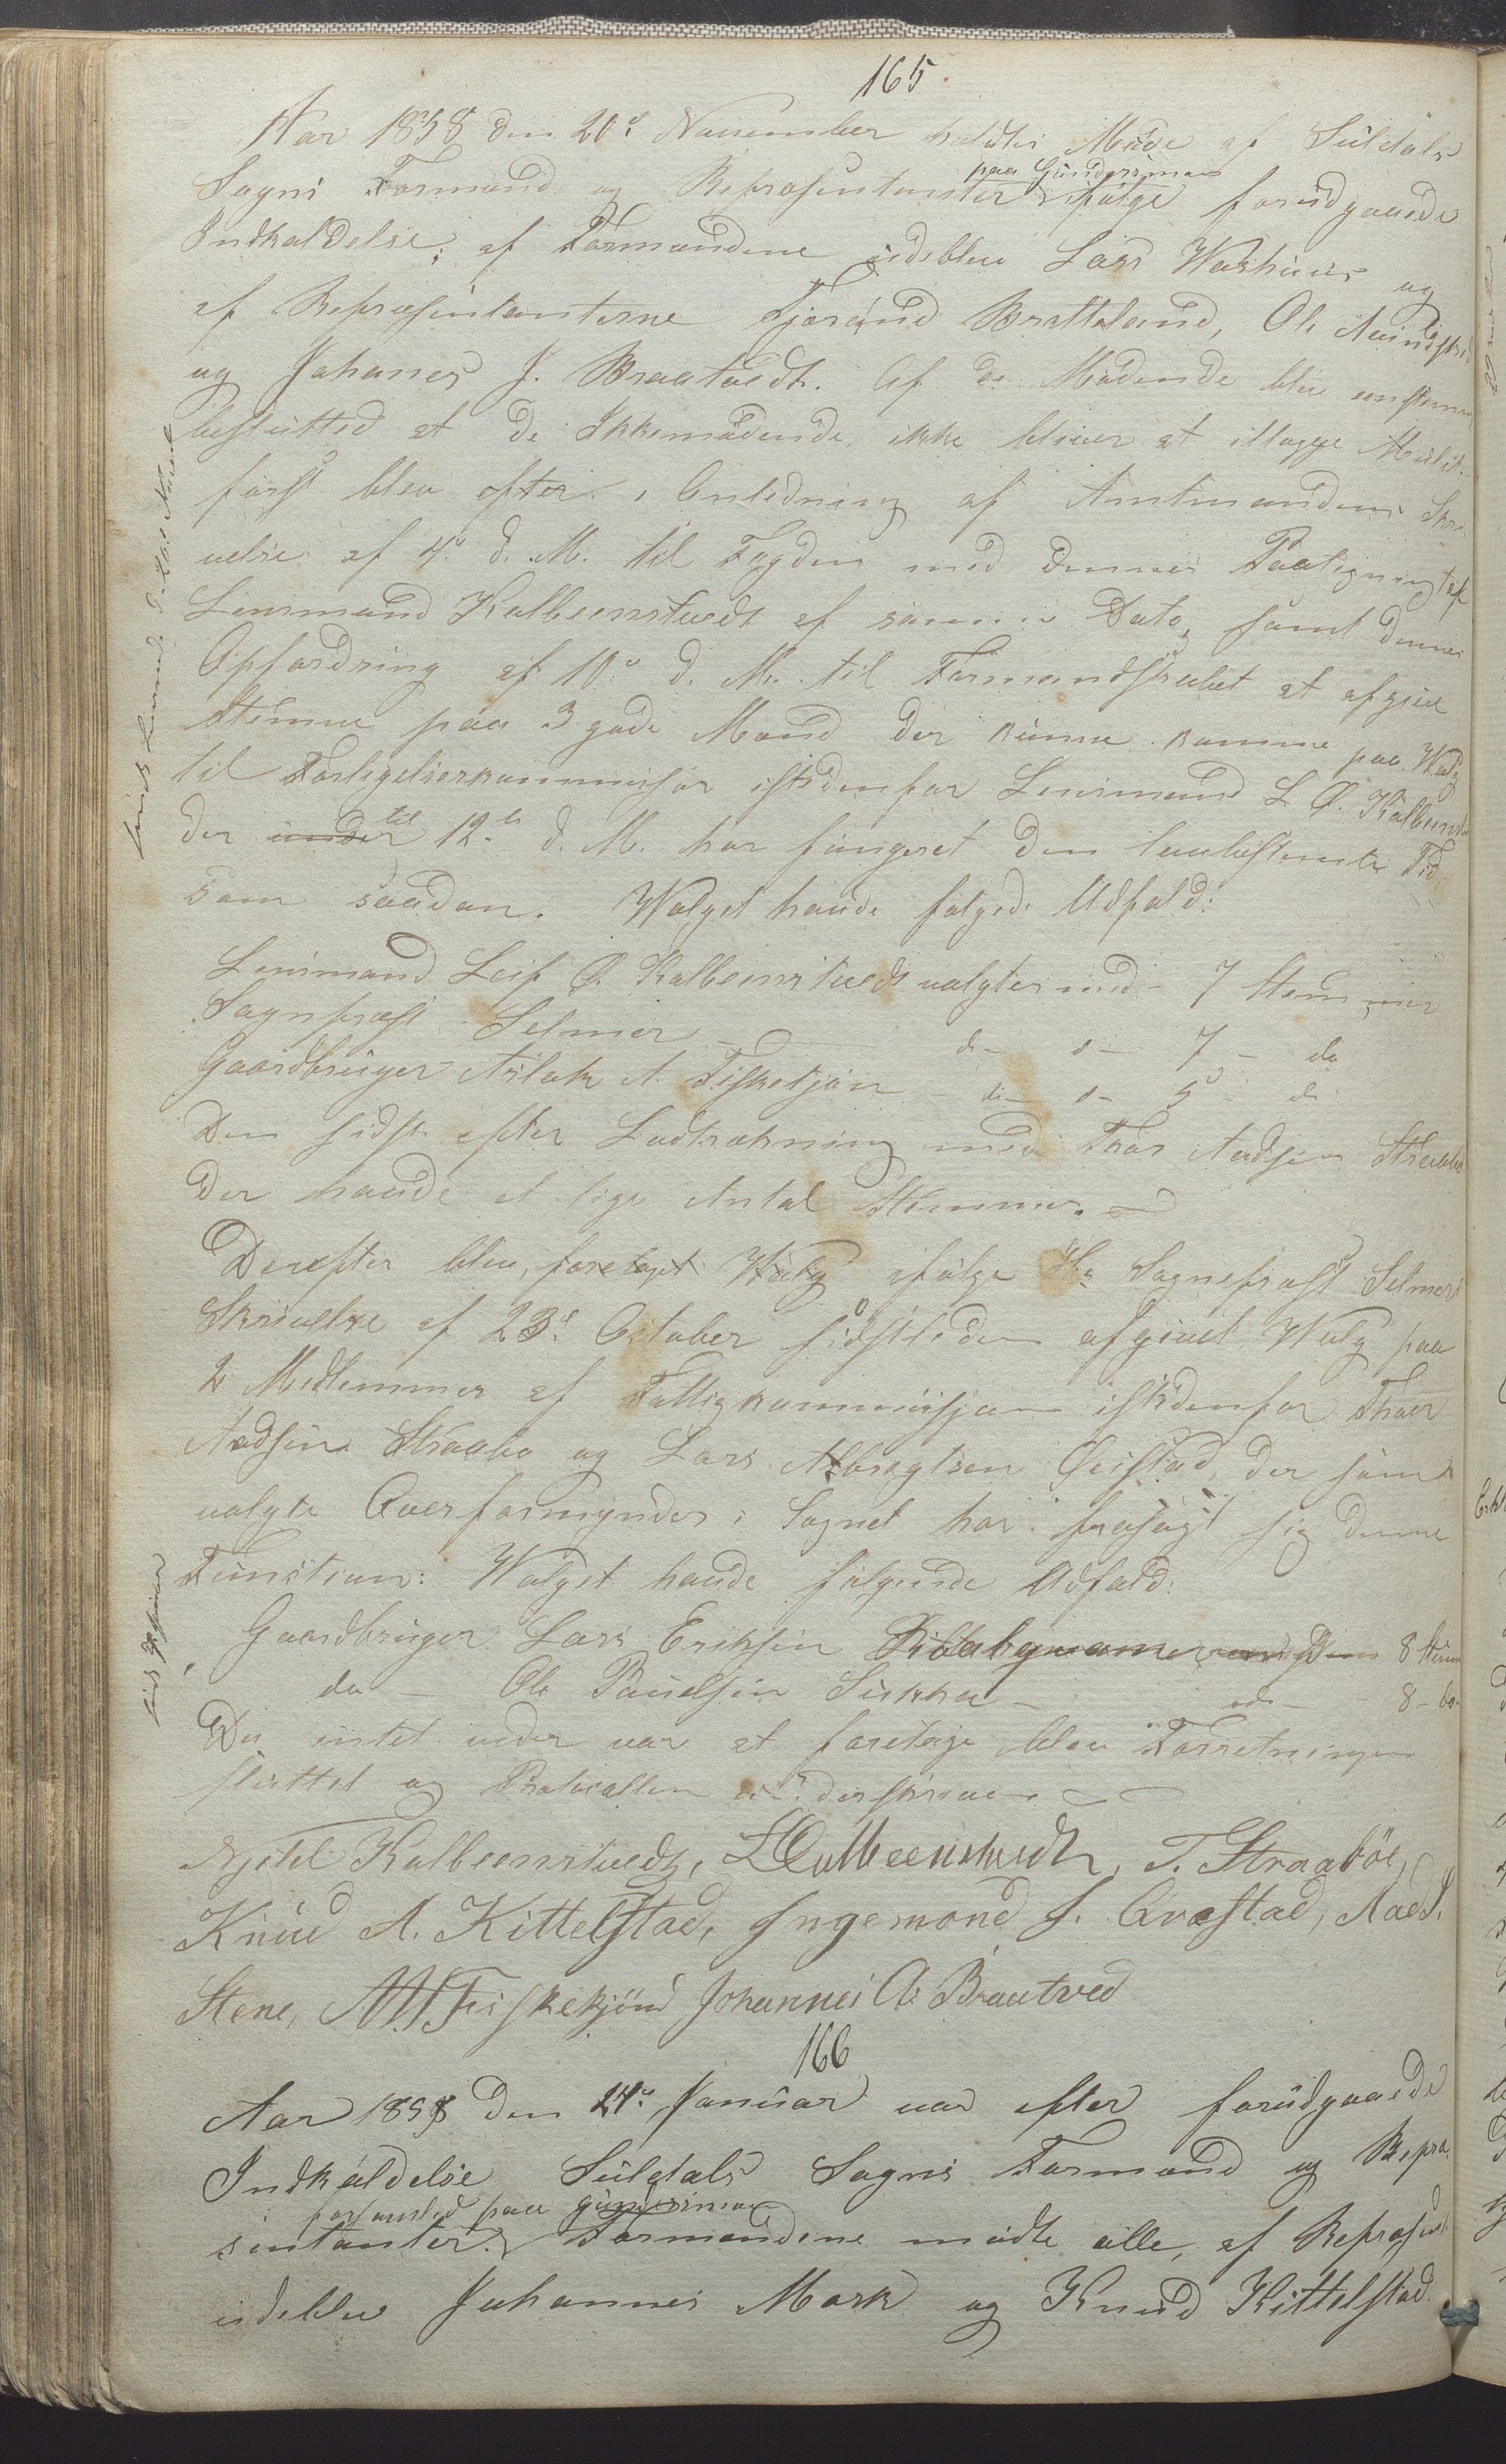 165.
Aar 1858 den 20de November holdtes Møde af Suldals
paa Gundersmoe
Sogns Formænd og Repræsentanter ifølge forudgaaede
Indkaldelse; af Formændene udeblev Lars Washuus og
af Repræsentanterne Tjerand Bratteland, Ole
og Johanes J. Braatvedt. Af de Mødende blev eenstemmi
beslutted at de Ikkemødende, ikke bliver at ilægge Mulct.
først blev efter Anledning af Amtmandens Skri
velse af 4de d. M. til Fogden med dennes Paategning til
Lensmand Kalbeenstvedt af samme Dato, samt dennes
Opfordring af 10de d. M. til Formandskabet at afgive
Stemme paa 3 gode Mænd der kunne komme paa Walg
til Forligelseskommisær istedenfor Lensmand L. Ø. Kolbeenstv
der under til 12te d. M. har fungeret den lovbestemte Tid
som saadan. Walget havde følgede Udfald:
Lensmand Leif Ø. Kalbeenstvedt valgtes med - 7 Stemmer
Sognpræst Selmer - d - d - 7 - do
Gaardbruger Aslak A. Fiskekjøn - do - d - 5 - do
Den sidste efter Lodtrækning med Thor Aadsen Straabø
der havde et lige Antal Stemmer.
Derefter blev, foretaget Walg ifølge Hr Sognepræst Selmers
Skrivelse af 23de October sidstleden afgivet Walg paa
2 Medlemmer af Fattigkommisjon istedenfor Thoer
Aadsen Straabø og Lars Albregtsen Qvistad, der som
valgte Overformynder i Sognet har frasagt sig denne
Funktion: Walget havde følgende Udfald:
Gaardbruger Lars Eriksen 8 Stem
do - Ole Paulsen Sukka - do - 8 - do.
Da intet videre var at foretage blev Forretningen
sluttet og Protocollen underskreven
Kjetel Kalbeenstvedt, LØKalbeenstvedt, T. Straabøe,
Knud A. Kittelstad, Ingemond J. Qvæstad, Aad J.
Stene, AAFiskekjønd Johannes A. Braatved
166
Aar 1859 den 24de Januar var efter forudgaaede
Indkaldelse Suldals Sogns Formænd og Repræ
forsamled paa Gundersmoe
sentanter. Formændene mødte alle, af Repræsent
udeblev Johannes Mork og Knud Kittelstad.